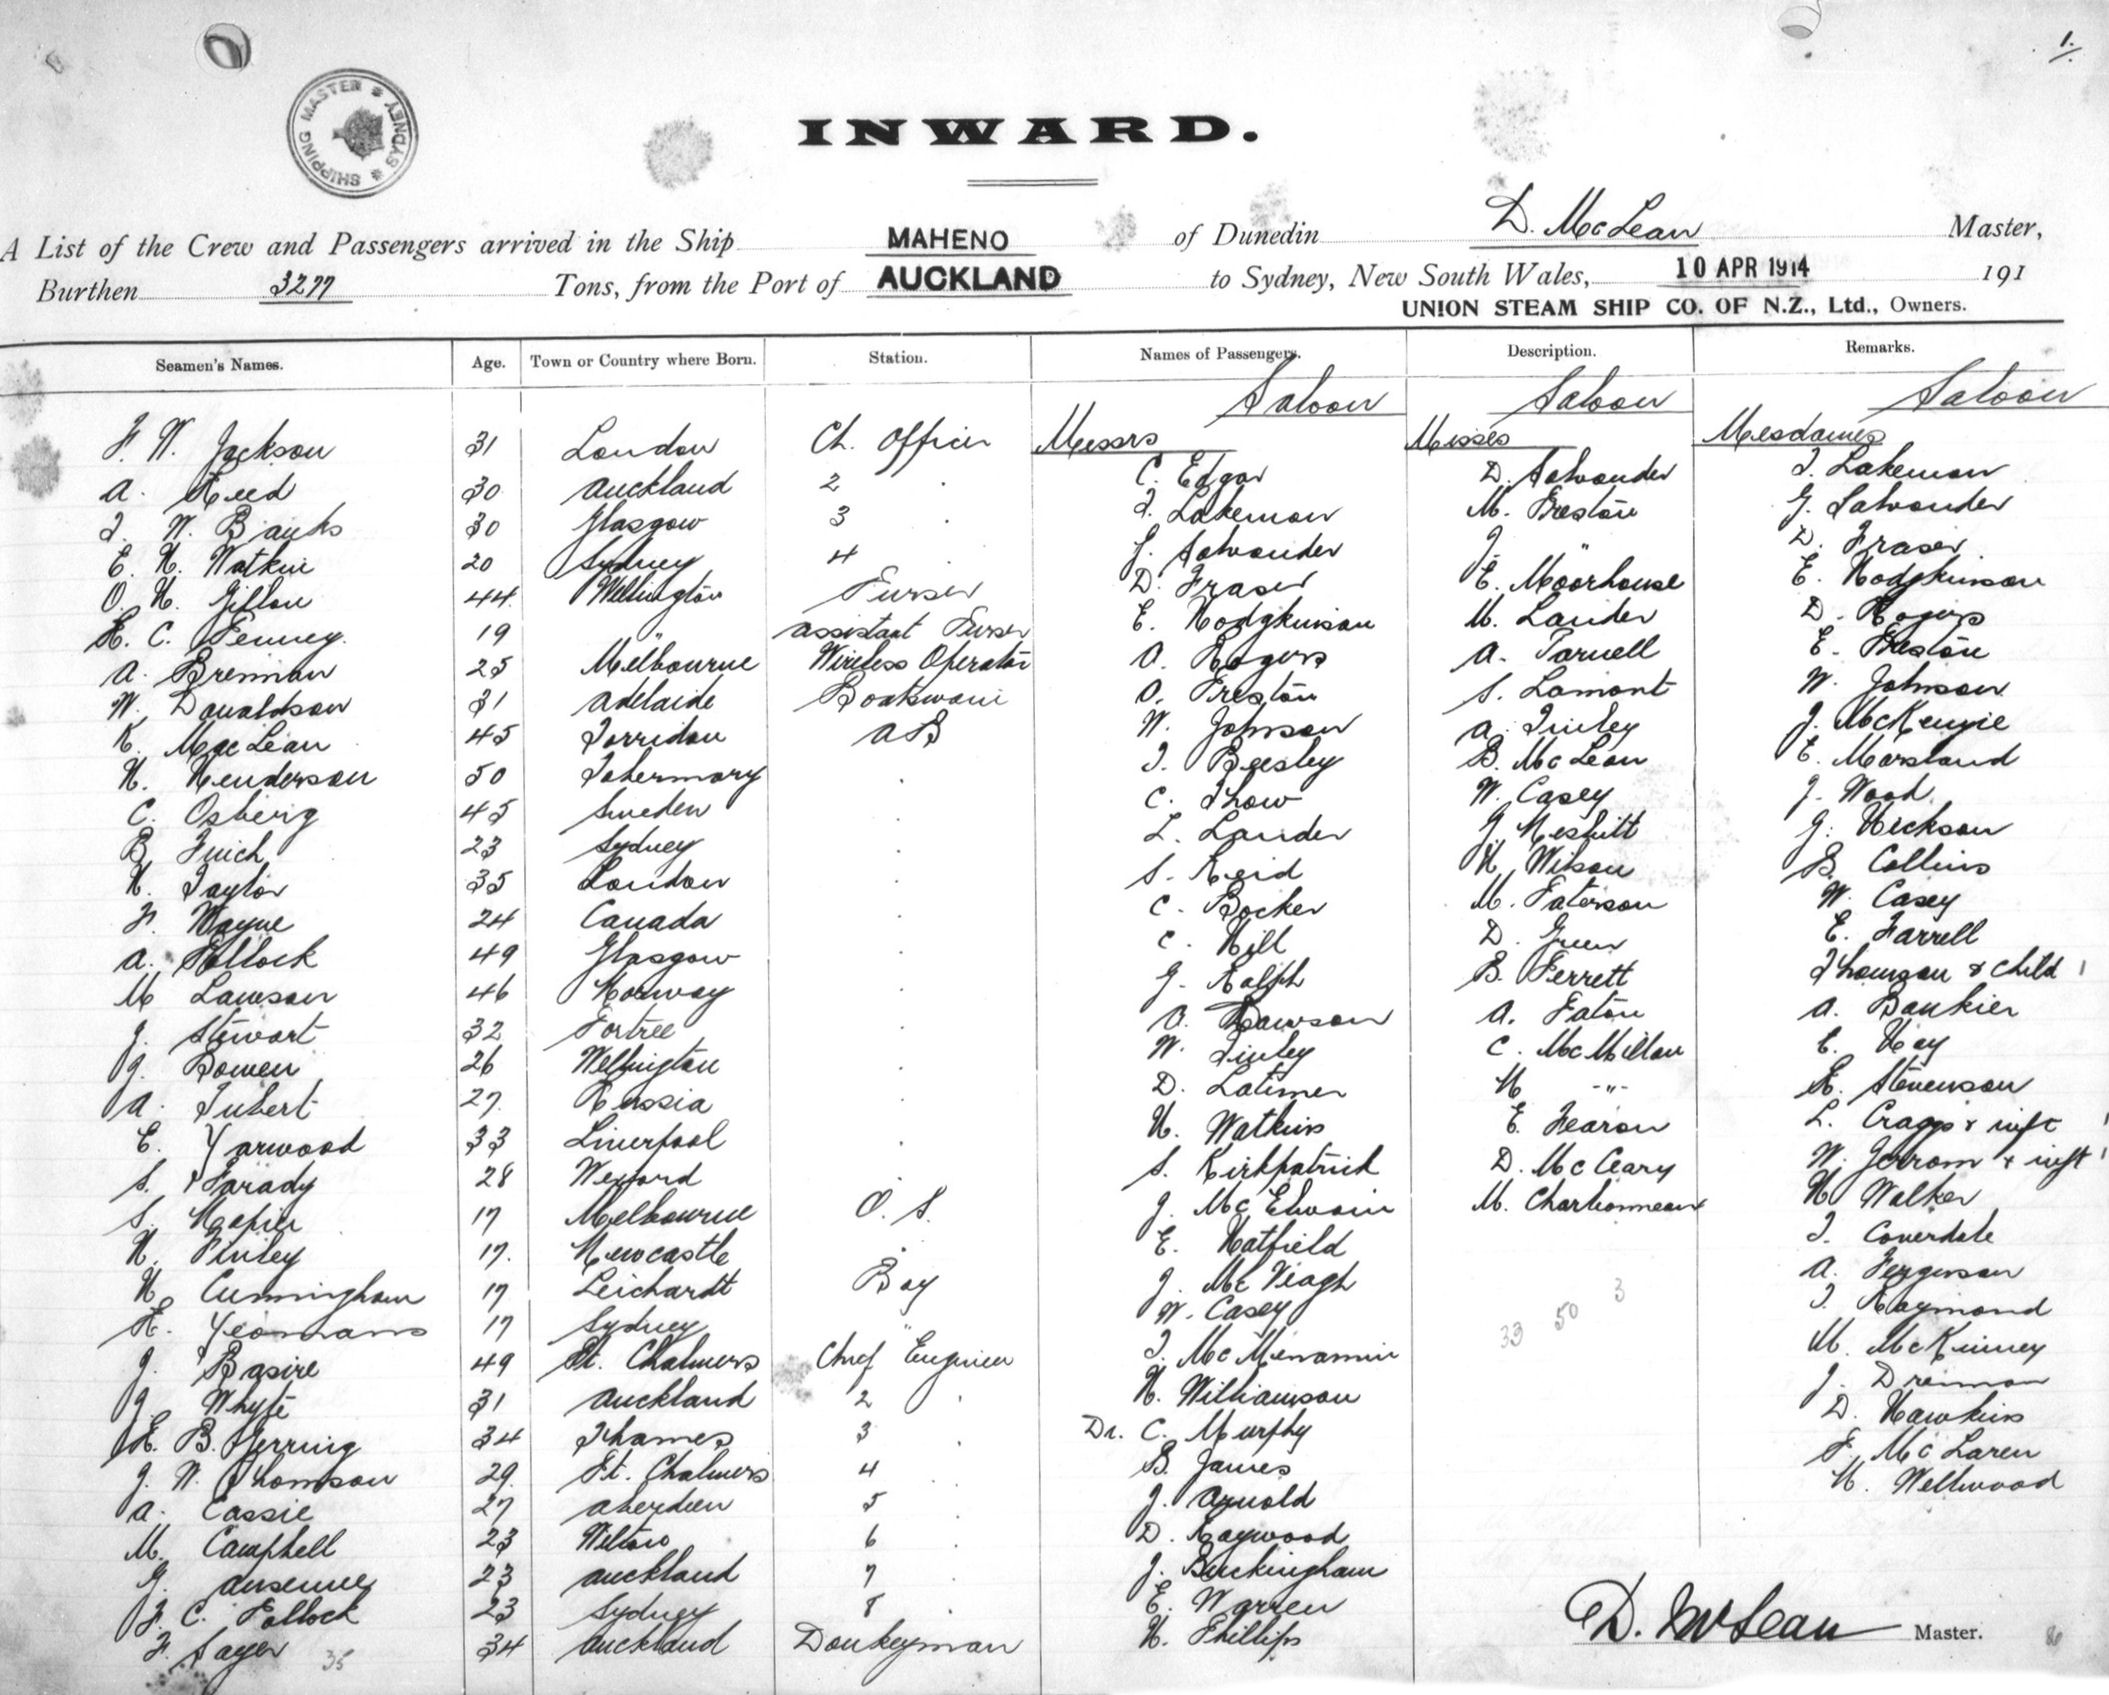 1.
SHIPPING MASTER * SYDNEY *
INWARD.
A List of the Crew and Passengers arrived in the Ship MAHENO of Dunedin D. McLean Master,
Burthen 3277 Tons, from the Port of AUCKLAND to Sydney, New South Wales, 10 APR 1914 191
UNION STEAM SHIP CO. OF N.Z., Ltd., Owners.
Seamen's Names. Age. Town or Country where Born. Station. Names of Passengers. Description. Remarks.
Saloon Saloon Saloon
F. W. Jackson 31 London Ch. Officer Messrs Misses Mesdames
A. Reed 30 Auckland 2 . C. Edgar D. Salvander T. Lakeman
T. W. Banks 30 Glasgow 3 . T. Lakeman M. Preston G. Salvander
E. H. Watkin 20 Sydney 4 G. Salvander J. " D. Fraser
O. H. Gillon 44 Wellington Purser D. Fraser E. Moorhouse E. Hodgkinson
R. C. Penney. 19 " Assistant Purser E. Hodgkinson M. Lander D. Rogers
A. Brennan 25 Melbourne Wireless Operator A. Rogers A. Parnell E. Preston
W. Donaldson 31 Adelaide Boatswain O. Preston S. Lamont W. Johnson
K. MacLean 45 Torridon AB W. Johnson A. Finley J. McKenzie
H. Henderson 50 Tobermory . T. Beesley B. McLean E. Marsland
C. Osberg 45 Sweden . C. Thow W. Casey J. Wood
B. Finch 23 Sydney . L. Lander J. Nesbitt G. Hickson
H. Taylor 35 London . S. Reid H. Wilson B. Collins
F. Wayne 24 Canada . C. Bocker M. Paterson W. Casey
A. Pollock 49 Glasgow . C. Hill D. Green E. Farrell
M Lawson 46 Norway . G. Ralph B. Perrett Thomson & Child 1
J. Stewart 32 Portree . O. Dawson A. Paton A. Bankier
J. Bowen 26 Wellington . W. Finley C. McMillan E. Hay
A. Tubert 27. Russia . D. Latimer H -"- R. Stevenson
E. Yarwood 33 Liverpool . H. Watkins E. Fearon L. Craggs & inft 1
S. Parady 28 Wexford S. Kirkpatrick D. McCeary W. Jerrom & inft 1
S. Napier 17 Melbourne O. S. J. McElwain M. Charbonneaux H. Walker
H. Finley 17. Newcastle . E. Hatfield T. Coverdale
H. Cunningham 17 Leichardt Boy J. McVeagh A. Ferguson
R. Yeomans 17 Sydney " W. Casey 33 50 3 T. Raymond
J. Basire 49 Pt. Chalmers Chief Engineer T. McMenamin M. McKinney
J. Whyte 31 Auckland 2 . H. Williamson J. Drennan
R. B. Herring 34 Thames 3 . Dr. C. Murphy D. Hawkins
J. W. Thomson 29. Pt. Chalmers 4 . B. James F. McLaren
A. Cassie 27 Aberdeen 5 . J. Arnold H. Wellwood
M. Campbell 23 Wilton 6 . D. Haywood
G. 23 Auckland 7 . J. Buckingham
F. C. Pollock 23 Sydney 8 . E. Warren
F. Sayer 35 34 Auckland Donkeyman H. Phillips
D. McLean Master. 80